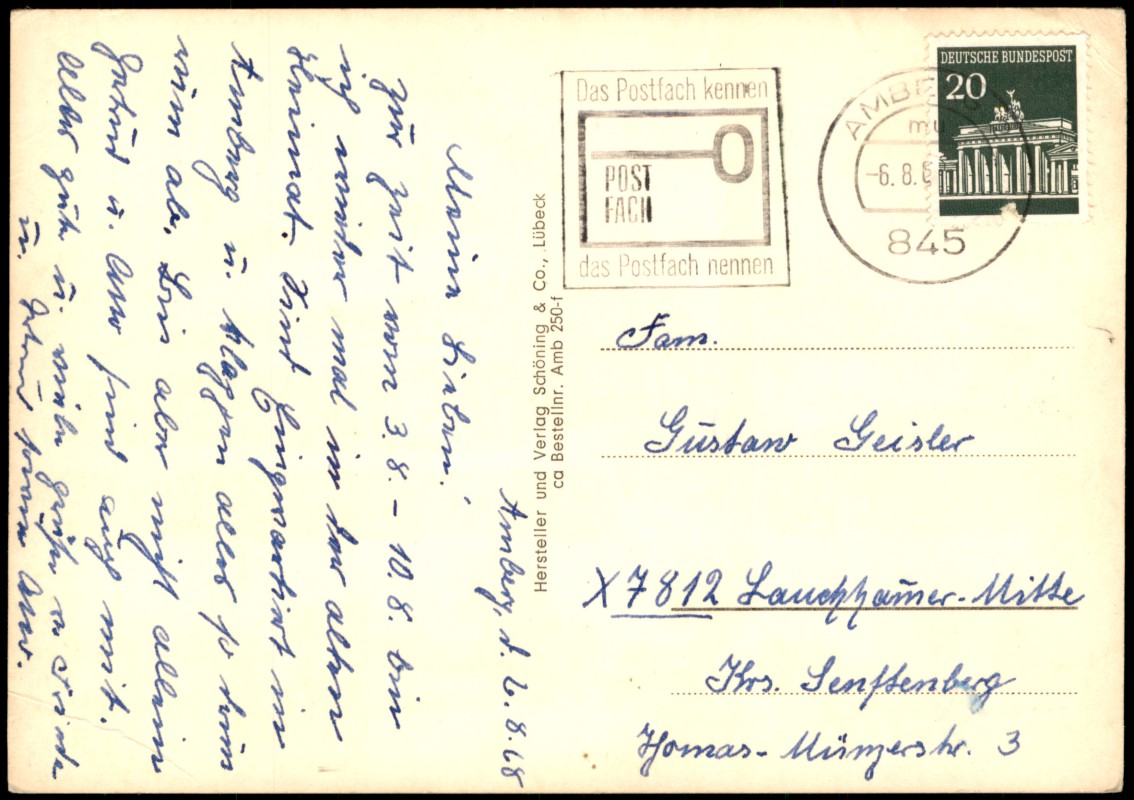 Amberg, d. 6.8.68
Meine Lieben!
Zur Zeit vom 3.8. – 10.8. bin
ich wieder mal in der alten
Heimat. Sind einquartiert in
Amberg u.
alles so
bin aber nicht allein
u. sind auch mit.
Alles gute u. viele grüße an
u.
Hersteller und Verlag Schöning & Co., Lübeck
ca Bestellnr. Amb 250-f
Das Postfach kennen
POST
FACH
das Postfach nennen
AMBERG
mu
-6. 8. 6
845
DEUTSCHE BUNDESPOST
20
Fam.
Gustav Geisler
X 7812 Lauchhamer-Mitte
Krs. Senftenberg
Thomas-Münzerstr. 3